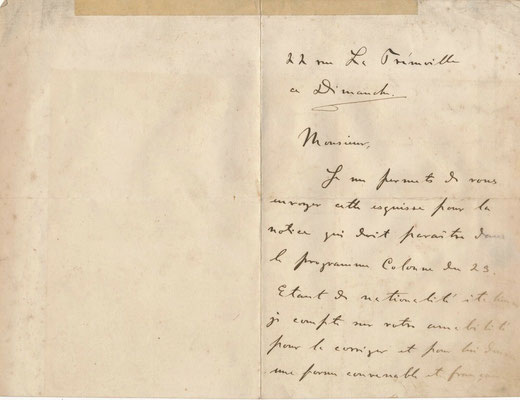 22 rue La Trémoille
ce Dimanche.
Monsieur,
Je me permets de vous
envoyer cette esquisse pour la
notice qui doit paraître dans
le programme Colonne du 23.
Etant de nationalité italienne
je compte sur votre amabilité
pour la corriger et pour lui donner
une forme convenable et française